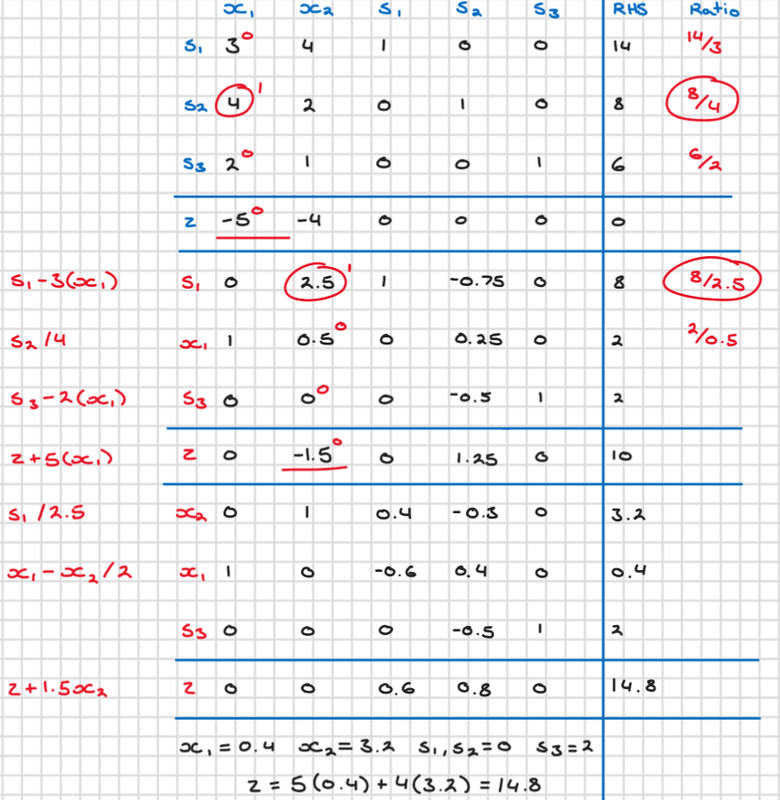 x₁ x₂ s₁ s₂ s₃ RHS Ratio
s₁ 3⁰ 4 1 0 0 14 14/3
s₂ 4¹ 2 0 1 0 8 8/4
s₃ 2⁰ 1 0 0 1 6 6/2
z -5⁰ -4 0 0 0 0
s₁-3(x₁) s₁ 0 2.5¹ 1 -0.75 0 8 8/2.5
s₂/4 x₁ 1 0.5⁰ 0 0.25 0 2 2/0.5
s₃-2(x₁) s₃ 0 0⁰ 0 -0.5 1 2
z+5(x₁) z 0 -1.5⁰ 0 1.25 0 10
s₁/2.5 x₂ 0 1 0.4 -0.3 0 3.2
x₁-x₂/2 x₁ 1 0 -0.6 0.4 0 0.4
s₃ 0 0 0 -0.5 1 2
z+1.5x₂ z 0 0 0.6 0.8 0 14.8
x₁=0.4 x₂=3.2 s₁,s₂=0 s₃=2
z=5(0.4)+4(3.2)=14.8